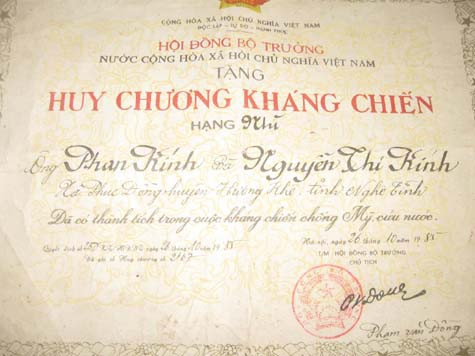 CỘNG HÒA XÃ HỘI CHỦ NGHĨA VIỆT NAM
ĐỘC LẬP - TỰ DO - HẠNH PHÚC
HỘI ĐỒNG BỘ TRƯỞNG
NƯỚC CỘNG HÒA XÃ HỘI CHỦ NGHĨA VIỆT NAM
TẶNG
HUY CHƯƠNG KHÁNG CHIẾN
HẠNG Nhì
Ông Phan Kính Bà Nguyễn Thị Kính
Xã Phúc Đồng huyện Hương Khê, tỉnh Nghệ Tĩnh
Đã có thành tích trong cuộc kháng chiến chống Mỹ, cứu nước.
Quyết định số KT/HĐBT ngày 26 tháng 10 năm 1985
Hà-nội, ngày 26 tháng 10 năm 1985
Số Huy chương 2167
T/M HỘI ĐỒNG BỘ TRƯỞNG
CHỦ TỊCH
Phạm Văn Đồng